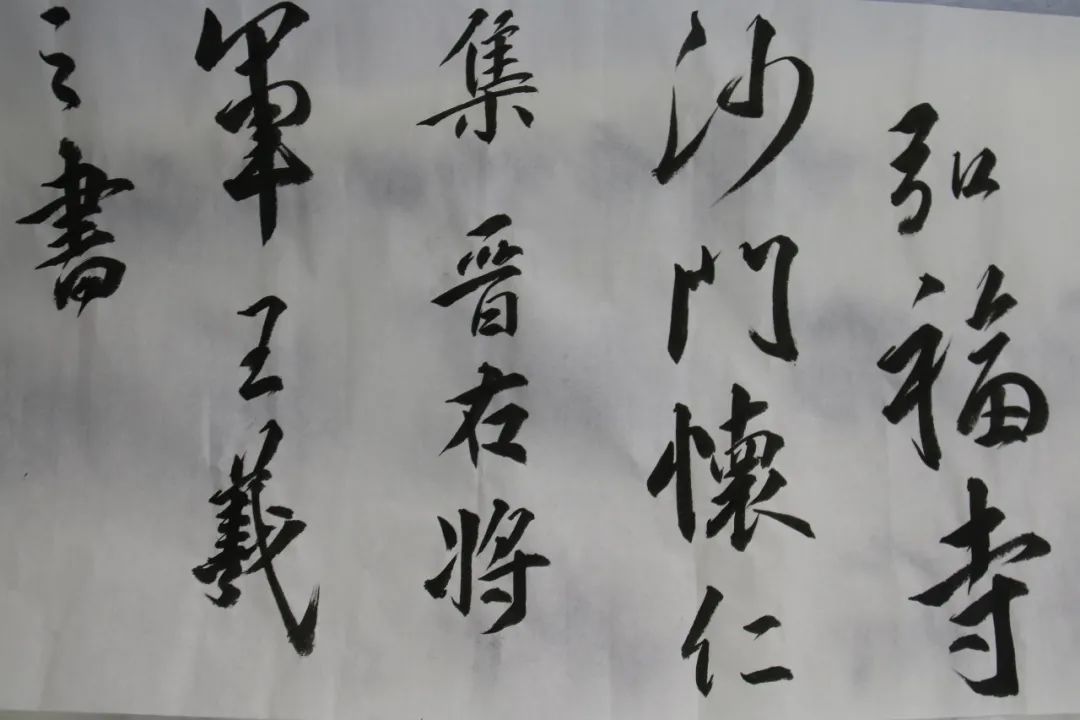 弘福寺
沙門懷仁
集晋右将
軍王羲
之書